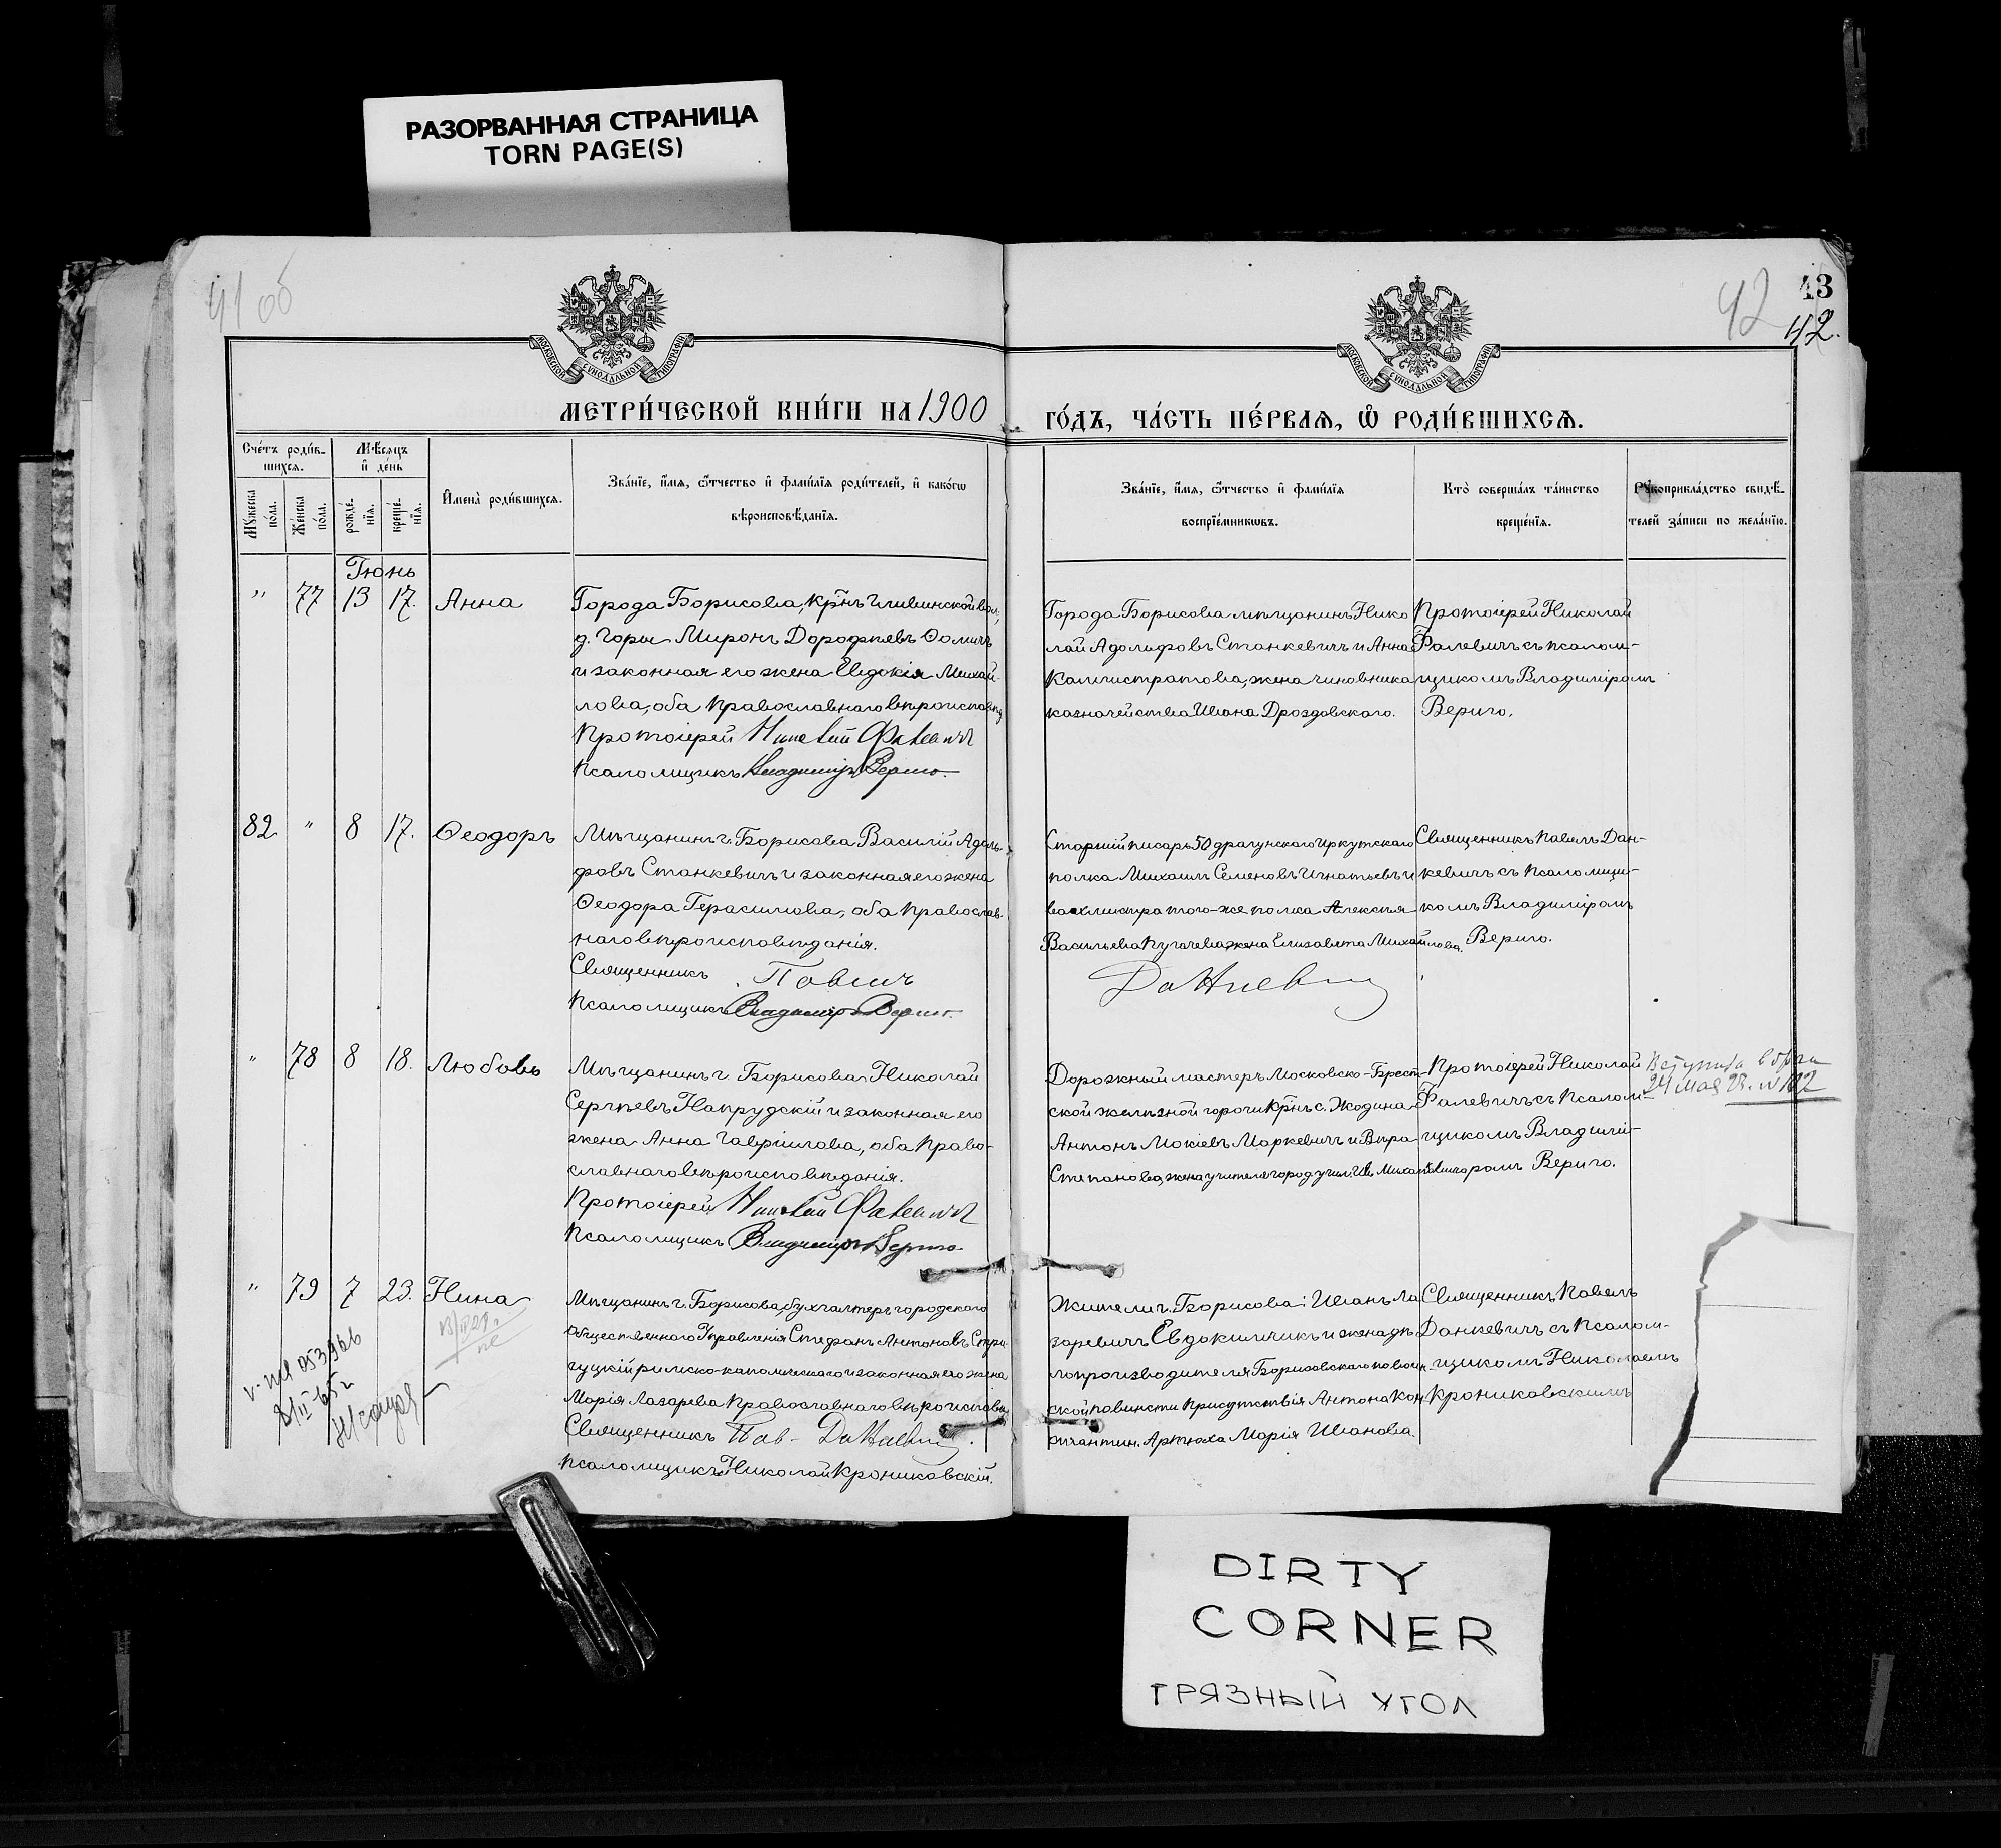 РАЗОРВАННАЯ СТРАНИЦА
TORN PAGE(S)
41 об
42
43
42.
МОСКОВСКОЙ СѴНОДАЛЬНОЙ ТИПОГРАФІИ
МОСКОВСКОЙ СѴНОДАЛЬНОЙ ТИПОГРАФІИ
МЕТРИ́ЧЕСКОЙ КНИ́ГИ НА 1900
ГО́ДЪ, ЧА́СТЬ ПЕ́РВАЯ, Ѡ҆ РОДИ́ВШИХСЯ.
Сче́тъ роди́в-
шихся.
Мѣ́сяцъ
и҆ де́нь
Мꙋ́жеска
по́ла.
Же́нска
по́ла.
рожде́-
нїѧ.
креще́-
нїѧ.
И҆мена̀ роди́вшихся.
Зва́нїе, и҆́мя, ѻ҆́тчество и҆ фами́лїя роди́телей, и҆ како́гѡ
вѣроисповѣ́данїя.
Зва́нїе, и҆́мя, ѻ҆́тчество и҆ фами́лїя
воспрїе́мникѡвъ.
Кто̀ соверша́лъ та́инство
креще́нїя.
Рꙋкоприкла́дство свидѣ́-
телей за́писи по жела́нїю.
Іюнь
" 77 13 17. Анна
Города Борисова, крн̃ъ Гливинской вол.,
д. Горы Миронъ Дорофѣевъ Ѳомичъ
и законная его жена Евдокія Михай-
лова, оба Православнаго вѣроисповѣд
Протоіерей Николай Фалевичъ
Псаломщикъ Владиміръ Вериго.
Города Борисова мѣщанинъ Нико
лай Адольфовъ Станкевичъ и Анна
Каллистратова, жена чиновника
казначейства Ивана Дроздовскаго.
Протоіерей Николай
Фалевичъ съ псалом-
щикомъ Владиміромъ
Вериго.
82 " 8 17. Ѳеодоръ
Мѣщанинъ г. Борисова Василій Адоль-
фовъ Станкевичъ и законная его жена
Ѳеодора Герасимова, оба православ-
наго вѣроисповѣданія.
Священникъ Павелъ
Псаломщикъ Владиміръ Вериго.
Старшій писарь 50 драгунскаго Иркутскаго
полка Михаилъ Семеновъ Игнатьевъ и
вахмистра того-же полка Алексѣя
Васильева Пугачева жена Елизавета Михайлова.
Данкевичъ
Священникъ Павелъ Дан-
кевичъ съ Псаломщи-
комъ Владиміромъ
Вериго.
" 78 8 18. Любовь
Мѣщанинъ г. Борисова Николай
Сергѣевъ Напрудскій и законная его
жена Анна Гавріилова, оба Право-
славнаго вѣроисповѣданія.
Протоіерей Николай Фалевичъ
Псаломщикъ Владиміръ Вериго.
Дорожный мастеръ Московско-Брест-
ской желѣзной дороги крн̃ъ с. Жодина
Антонъ Мокіевъ Маркевичъ и Вѣра
Степанова, жена учителя город. учил.
Протоіерей Николай
Фалевичъ съ Псалом-
щикомъ Владимі-
ромъ Вериго.
Вступила в брак
24 мая
" 79 7 23. Нина
Мѣщанинъ г. Борисова, бухгалтеръ городскаго
Общественнаго Управленія Стефанъ Антоновъ
римско-католическаго и законная его жена
Марія Лазарева Православнаго вѣроисповѣд
Священникъ Пав- Данкевичъ.
Псаломщикъ Николай Крониковскій.
Жители г. Борисова: Иванъ Ла
заревичъ Евдокимчикъ и жена дѣ
лопроизводителя Борисовскаго по воин-
ской повинсти Присутствія Антона Кон
стантин. Артюха Марія Иванова.
Священникъ Павелъ
Данкевичъ съ Псалом-
щикомъ Николаемъ
Крониковскимъ
DIRTY
CORNER
ГРЯЗНЫЙ УГОЛ